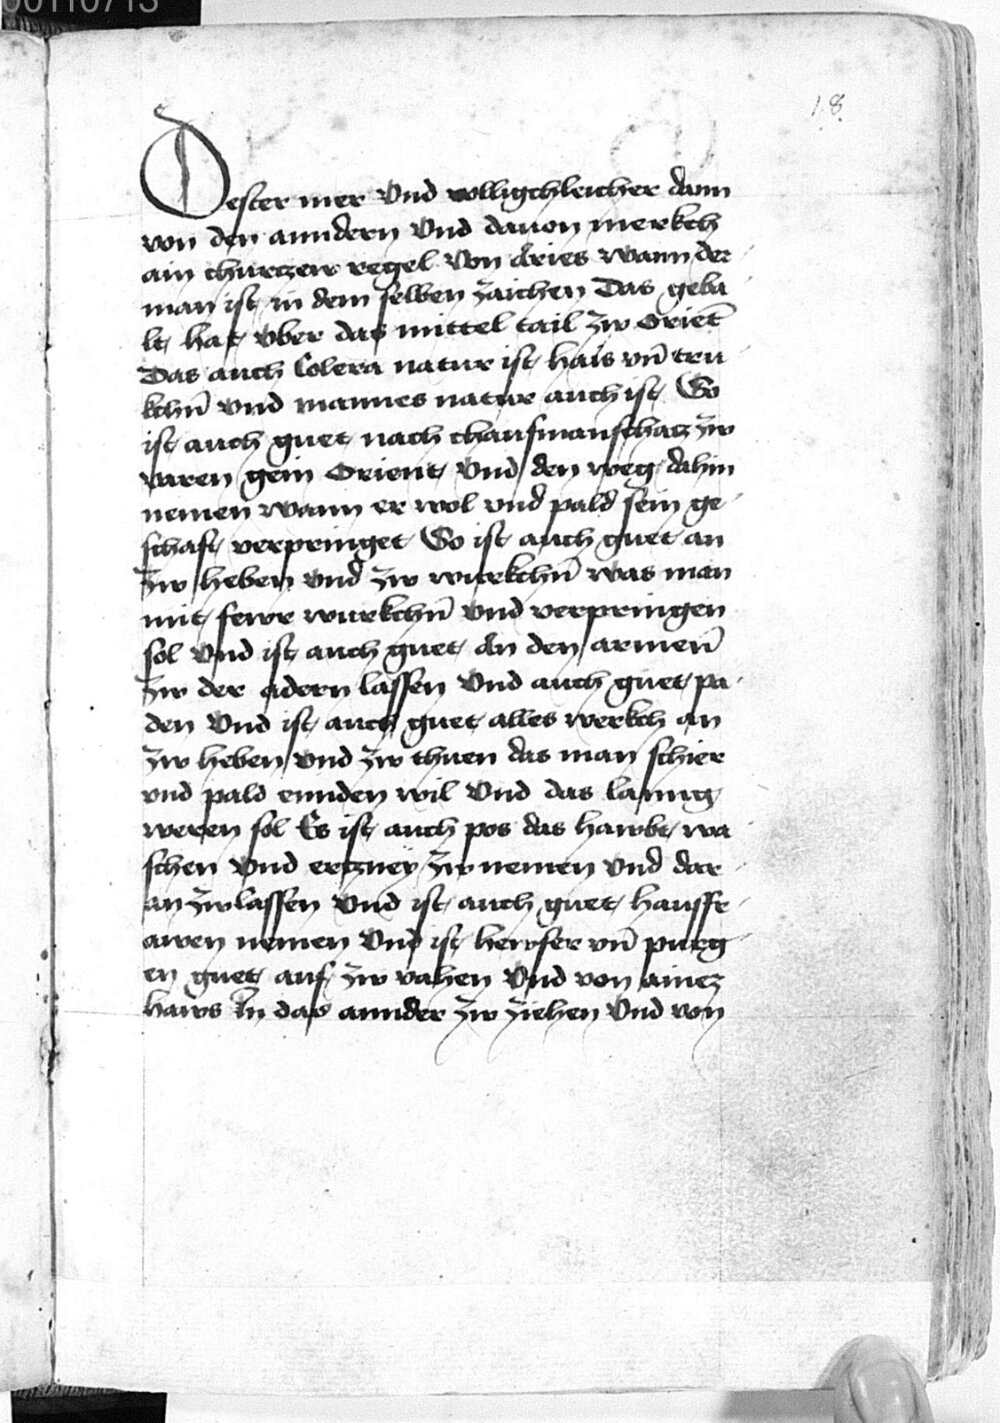 00110713
18
Dester mer Vnd volligchleicher dann
von den anndern Vnd dauon merkch
ain churtzew regel Von Aries wann der
man ist in dem selben zaichen Das geba
lt hat vber das mittel tail zw Orient̄
Das auch Colera natur ist hais vn̄ tru
kchn̄ vnd mannes natur auch ist So
ist auch guet nach chaufmanschatz zw
varen gein Orient Vnd den weg dahin
nemen wann er wol vnd pald sein ge
schaft verpringet So ist auch guet an
zw heben vnd zw wurkchn̄ was man
mit fewr wurkchn̄ vnd verpringen
sol Vnd ist auch guet An den armen̄
zw der adern lassen Vnd auch guet pa
den Vnd ist auch guet alles werkch an
zw heben vnd zw thuen das man schier
vnd pald ennden wil Vnd das lanng
weren sol Es ist auch pos das hawbt wa
schen Vnd ertzney zw nemen Vnd dar
an zw lassen Vnd ist auch guet hausfr
awen nemen Vnd ist hewser vn̄ purg
en guet auf zw vahen Vnd von ainez
haws In das annder zw ziehen Vnd von